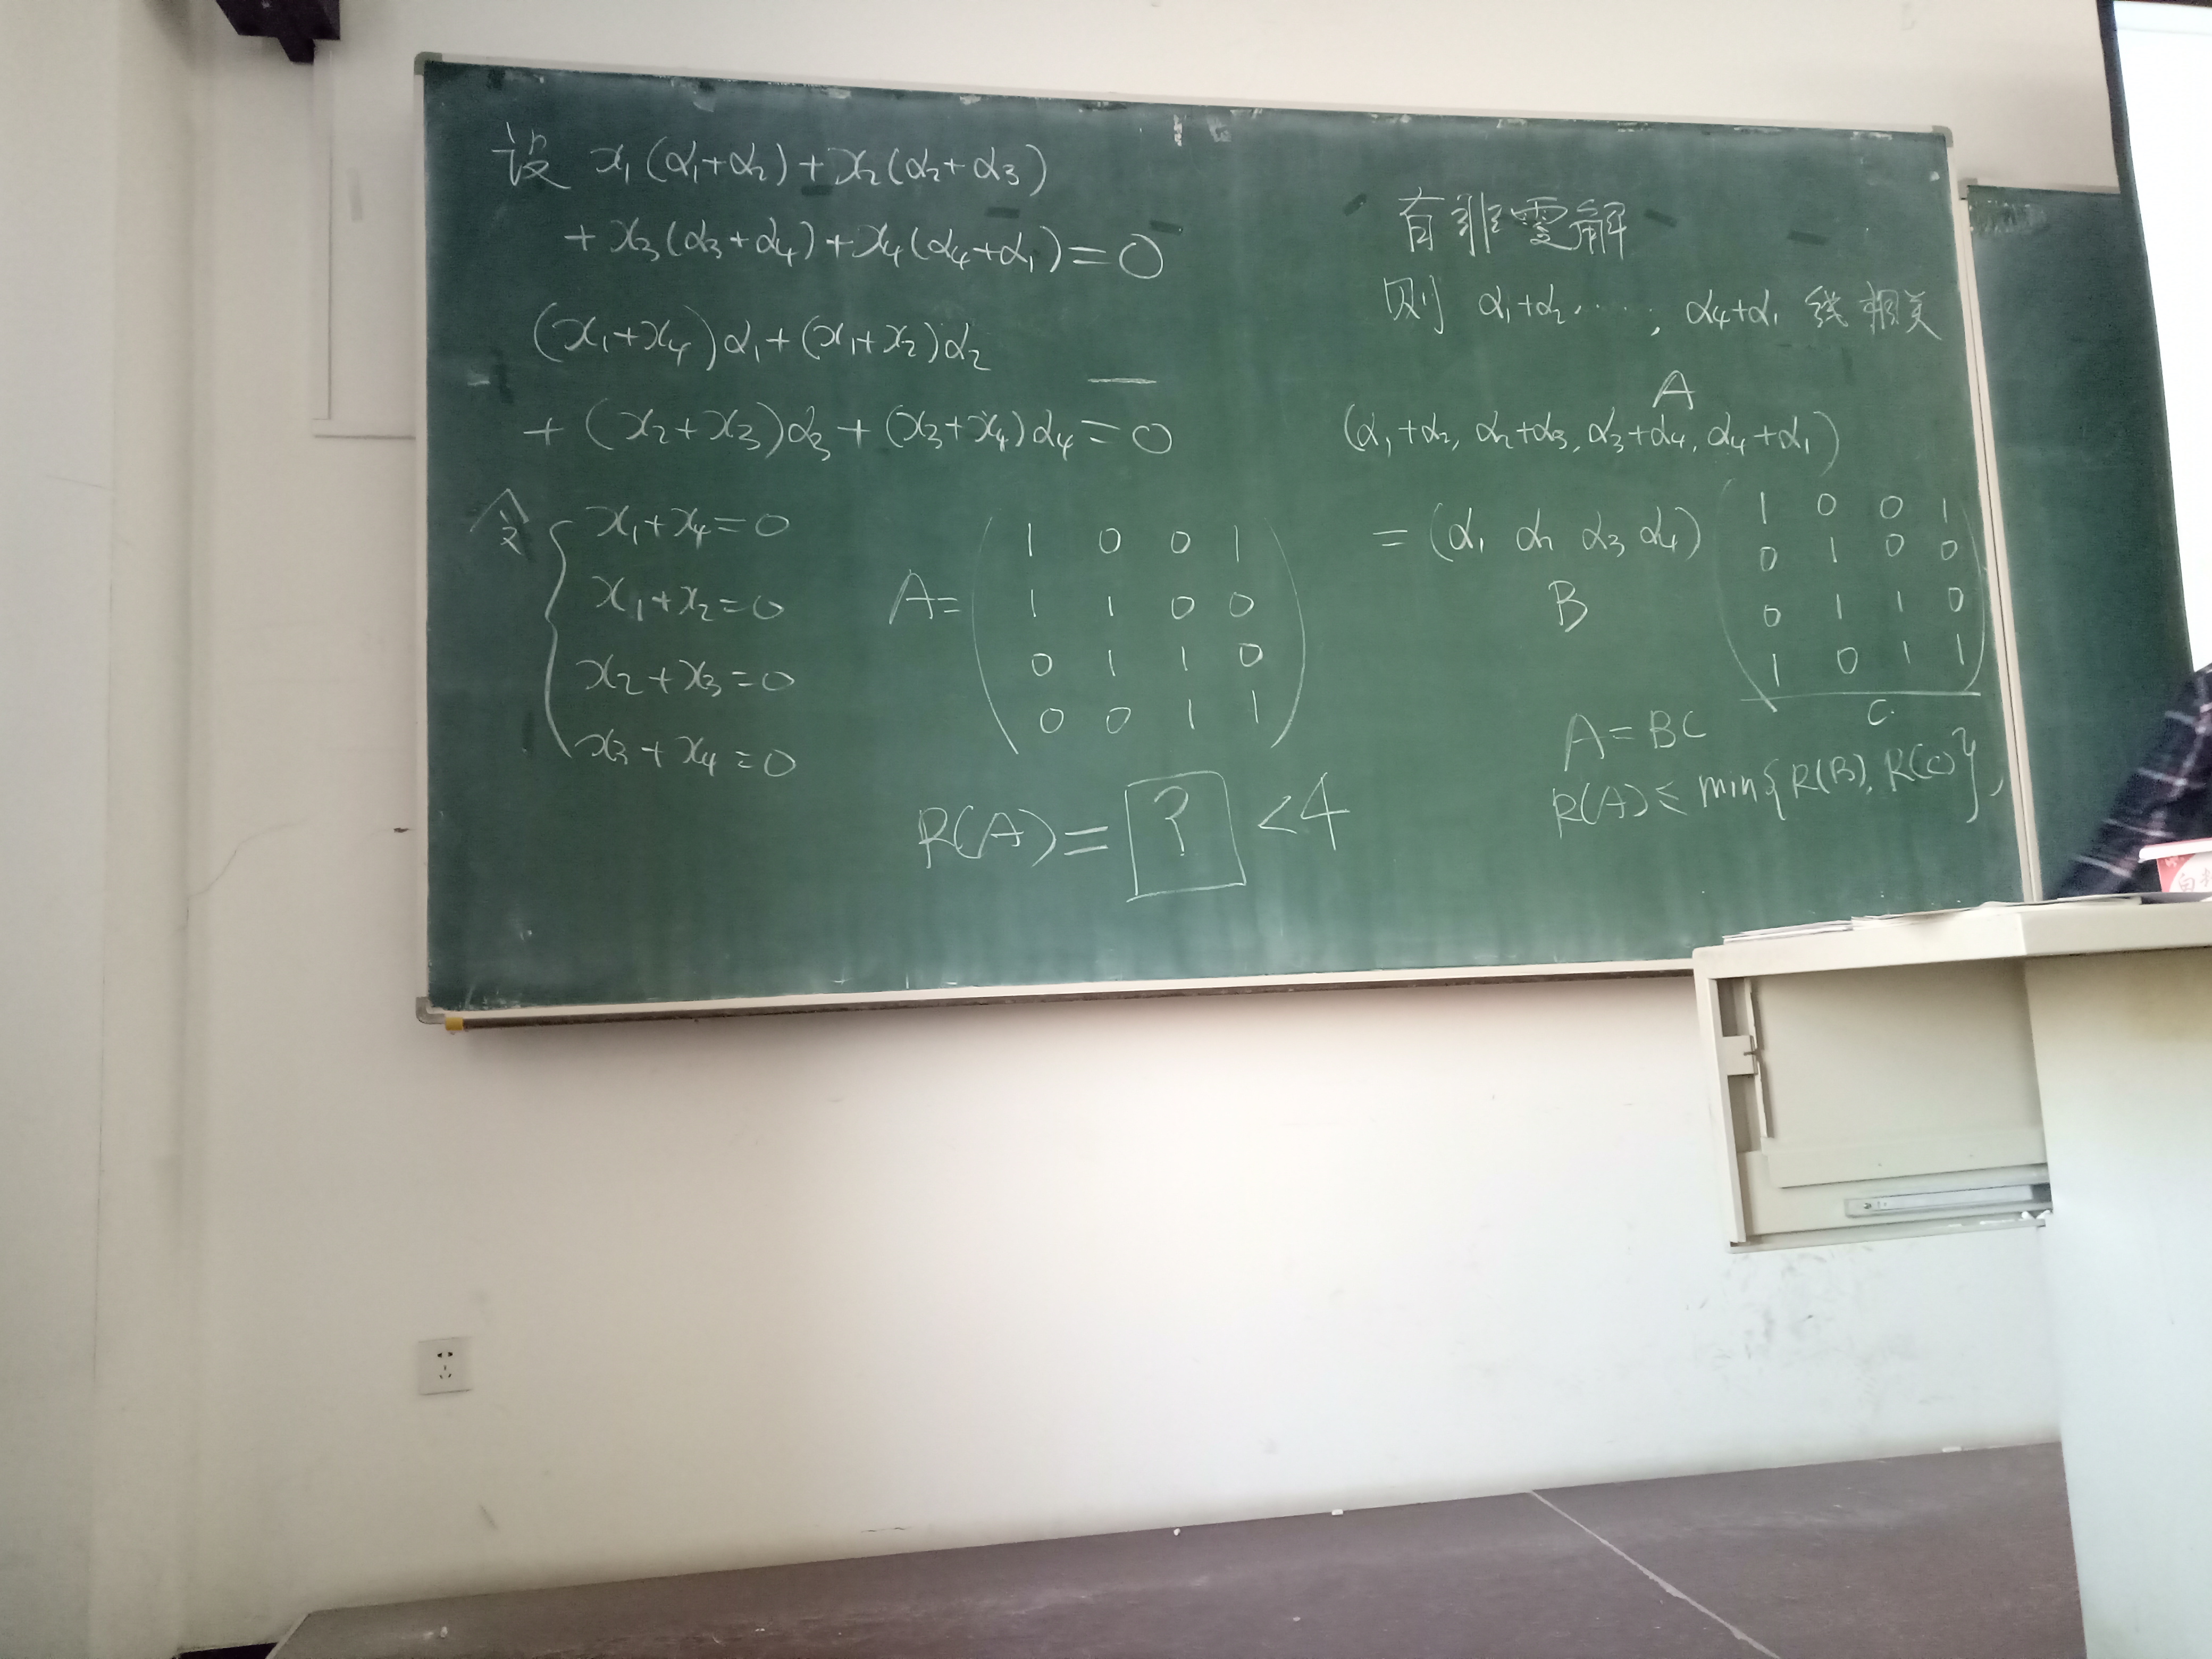 设 x₁(α₁+α₂)+x₂(α₂+α₃)
+x₃(α₃+α₄)+x₄(α₄+α₁)=0
(x₁+x₄)α₁+(x₁+x₂)α₂
+(x₂+x₃)α₃+(x₃+x₄)α₄=0
令
x₁+x₄=0
x₁+x₂=0
x₂+x₃=0
x₃+x₄=0
A=
1 0 0 1
1 1 0 0
0 1 1 0
0 0 1 1
R(A)= ? <4
有非零解
则 α₁+α₂, ⋯, α₄+α₁ 线相关
A
(α₁+α₂, α₂+α₃, α₃+α₄, α₄+α₁)
=(α₁ α₂ α₃ α₄)
B
1 0 0 1
0 1 0 0
0 1 1 0
1 0 1 1
C
A=BC
R(A)≤min{R(B), R(C)},